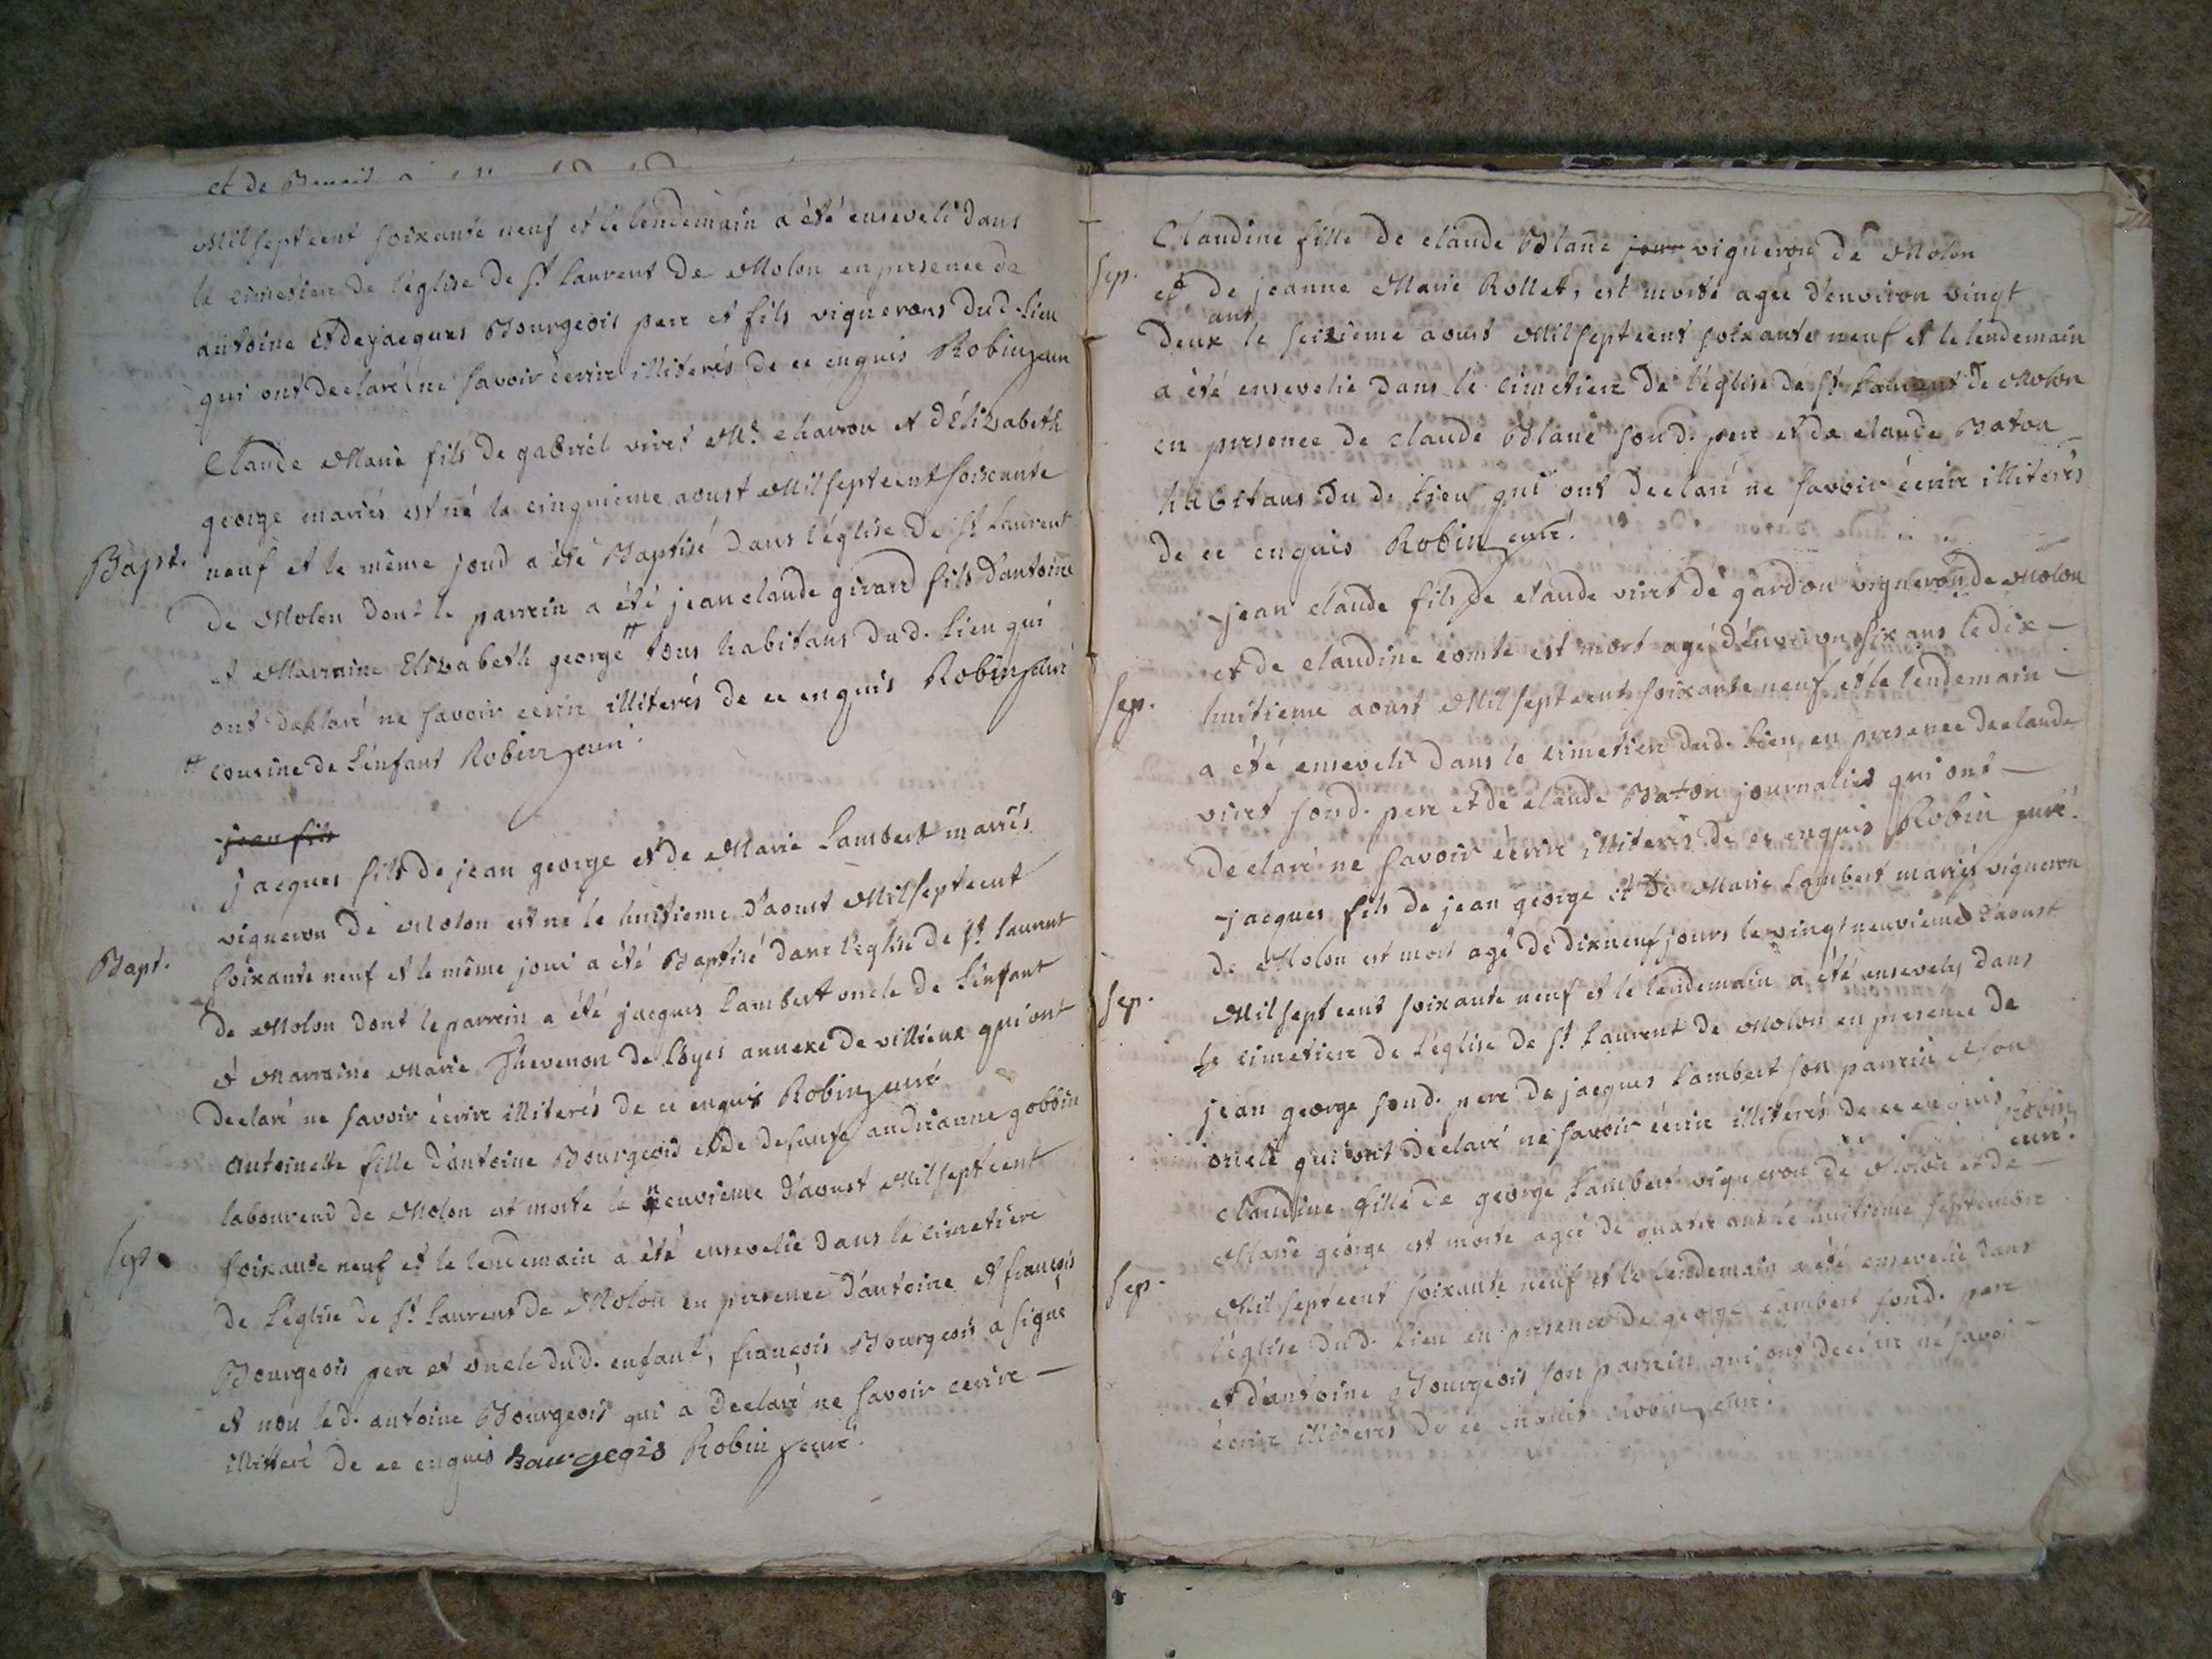 et de Benoit
Mil sept cent soixante neuf et le lendemain a été enseveli dans
le cimetiere de l'église de St Laurent de Molon en presence de
antoine et de jacques Bourgeois pere et fils vignerons dud. lieu
qui ont declaré ne savoir écrire illiterés de ce enquis Robin curé
Claude Marie fils de gabriel viret Me charron et d'Elizabeth
george mariés est né le cinquieme aoust Mil sept cent soixante
Bapt. neuf et le même jour a été Baptisé dans l'église de St Laurent
de Molon dont le parrein a été jean claude girard fils d'antoine
et Marraine Elizabeth george # tous habitans dud. lieu qui
ont declaré ne savoir ecrire illiterés de ce enquis Robin curé
# cousine de l'enfant Robin curé.
jean fils
jacques fils de jean george et de Marie Lambert mariés
vigneron de Molon est né le huitieme d'aoust Mil sept cent
Bapt. soixante neuf et le même jour a été Baptisé dans l'église de St Laurent
de Molon dont le parrein a été jacques Lambert oncle de l'enfant
et Marraine Marie Thevenon de Loyes annexe de villieux qui ont
declaré ne savoir écrire illiterés de ce enquis Robin curé
antoinette fille d'antoine Bourgeois et de defunte andrianne gobbin
laboureur de Molon est morte le neuvieme d'aoust Mil sept cent
Sep. soixante neuf et le lendemain a été ensevelie dans le cimetiere
de l'église de St Laurent de Molon en presence d'antoine et françois
Bourgeois pere et oncle dud. enfant, françois Bourgeois a signé
et non led. antoine Bourgeois qui a declaré ne savoir ecrire
illitteré de ce enquis Bourgeois Robin curé.
Claudine fille de claude Blanc jour vigneron de Molon
Sep. et de jeanne Marie Rollet, est morte agée d'environ vingt
ans
deux le seizieme aoust Mil sept cent soixante neuf et le lendemain
a été ensevelie dans le cimetiere de l'église de St Laurent de Molon
en presence de claude Blanc sond. pere et de claude Baton
habitans du d. lieu qui ont declaré ne savoir écrire illiterés
de ce enquis Robin curé.
jean claude fils de claude viret dé gardon vigneron de Molon
et de claudine comte est mort agé d'environ six ans le dix
Sep. huitieme aoust Mil sept cent soixante neuf et le lendemain
a été enseveli dans le cimetiere dud. lieu en presence de claude
viret sond. pere et de claude Baton journalier qui ont
declaré ne savoir écrire illiterés de ce enquis Robin curé.
jacques fils de jean george et de Marie Lambert mariés vigneron
de Molon est mort agé de dix neuf jours le vingt neuvieme d'aoust
Sep. Mil sept cent soixante neuf et le lendemain a été ensevely dans
le cimetiere de l'église de St Laurent de Molon en presence de
jean george sond. pere de jacques Lambert son parrein et son
oncle qui ont declaré ne savoir écrire illiterés de ce enquis Robin
curé.
Claudine fille de george Lambert vigneron de Molon et de
Marie george est morte agée de quatre ans le huitieme septembre
Sep. Mil sept cent soixante neuf et le lendemain a été ensevelie dans
l'église dud. lieu en presence de george Lambert sond. pere
et d'antoine Bourgeois son parrein qui ont declaré ne savoi
écrire illiterés de ce enquis Robin curé.